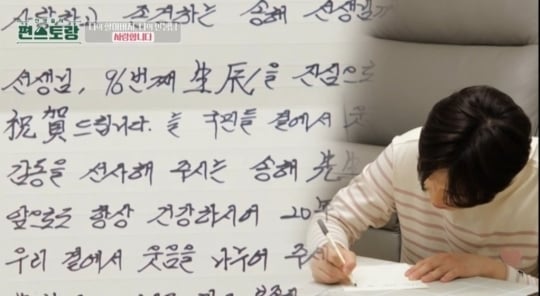 편스토랑
사랑합니다
사랑하고 존경하는 송해 선생님
선생님, 96번째 生辰을 진심으로
祝賀드립니다. 늘 국민들 곁에서 웃
감동을 선사해 주시는 송해 先生
앞으로도 항상 건강하시어 20
우리 곁에서 웃음을 나누어 주세